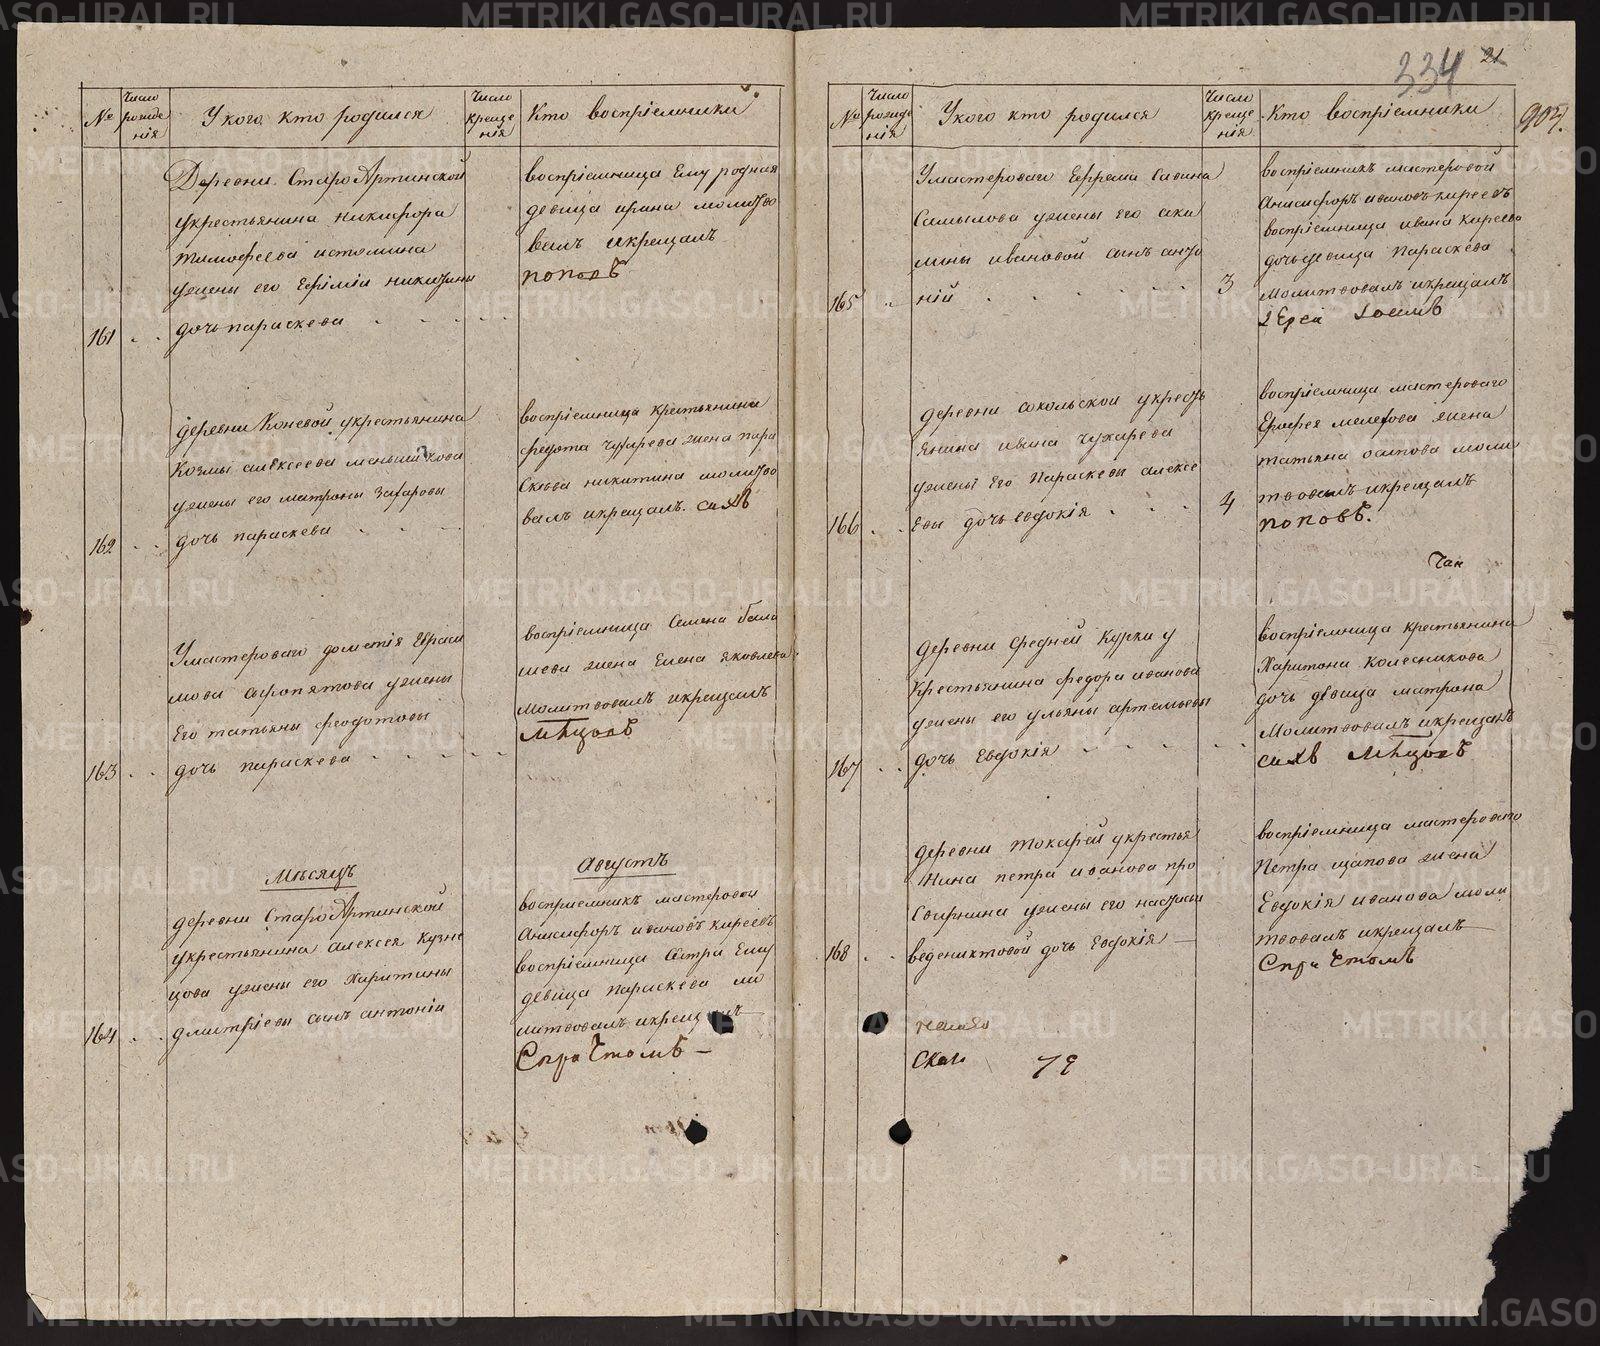 №
Число рожде нія
У кого кто родился
Число креще нія
Кто воспріемники
Деревни Старо Артинской
укрестьянина никифора
тимофеева истомина
ужены его Ефіміи никитины
161 дочь параскева
воспріемница Ему родная
девица ирина молитво
валъ икрещалъ
поповъ
деревни Коневой укрестьянина
Козмы алексеева меньшикова
ужены его матроны Захаровы
162 дочь параскева
воспріемница крестьянина
федота чухарева жена пара
скева никитина молитво
валъ икрещалъ.
Умастероваго дометія Евраси
мова сыропятова ужены
Его татьяны феодотовы
163 дочь параскева
воспріемница Семена бала
шева жена Елена яковлева
молитвовалъ икрещалъ
Мѣсяцъ
Августъ
деревни Старо Артинской
укрестьянина алексея кузне
цова ужены его Харитины
164 дмитріевы сынъ антоній
воспріемникъ мастеровой
Анисифоръ ивановъ киреевъ
воспріемница Сестра Ему
девица параскева мо
литвовалъ икрещалъ
334 21
№
Число рожде нія
У кого кто родился
Число креще нія
Кто воспріемники
907.
Умастероваго Ефрема Савина
Самылова ужены его аки
лины ивановой сынъ анто
165 ній 3
воспріемникъ мастеровой
Анисифоръ ивановъ киреевъ
воспріемница ивана киреева
дочь девица Параскева
молитвовалъ икрещалъ
деревни сокольской укресть
янина ивана чухарева
ужены его Параскевы алексе
166 евы дочь евдокія 4
воспріемница мастероваго
Ерофея жена
татьяна осипова моли
твовалъ икрещалъ
поповъ.
деревни средней Курки у
крестьянина федора иванова
ужены его ульяны артемьевы
167 дочь Евдокія
воспріемница крестьянина
Харитона колесникова
дочь девица матрона
молитвовалъ икрещалъ
деревни токарей укрестья
нина петра иванова про
свирнина ужены его настасьи
168 ведениктовой дочь Евдокія
воспріемница мастероваго
Петра щапова жена
Евдокія иванова моли
твовалъ икрещалъ
METRIKI.GASO-URAL.RU